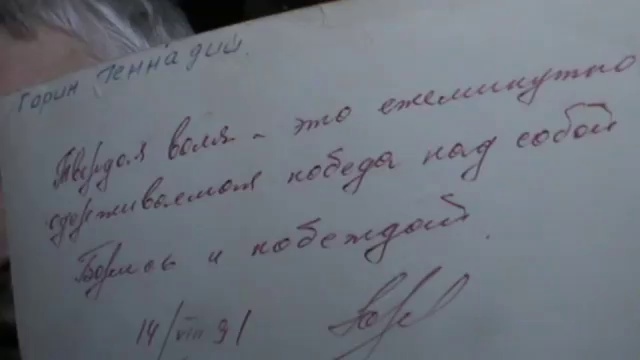 Горин Геннадий.
Твердая воля - это ежеминутно
одерживаемая победа над собой
Борись и побеждай.
14/VIII 91